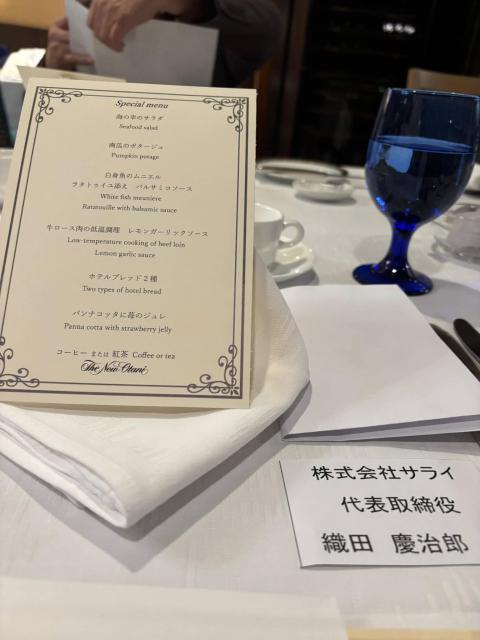 Special menu
海の幸のサラダ
Seafood salad
南瓜のポタージュ
Pumpkin potage
白身魚のムニエル
ラタトゥイユ添え　バルサミコソース
White fish meuniere
Ratatouille with balsamic sauce
牛ロース肉の低温調理　レモンガーリックソース
Low-temperature cooking of beef loin
Lemon garlic sauce
ホテルブレッド２種
Two types of hotel bread
パンナコッタに苺のジュレ
Panna cotta with strawberry jelly
コーヒー または 紅茶 Coffee or tea
The New Otani
株式会社サライ
代表取締役
織田　慶治郎